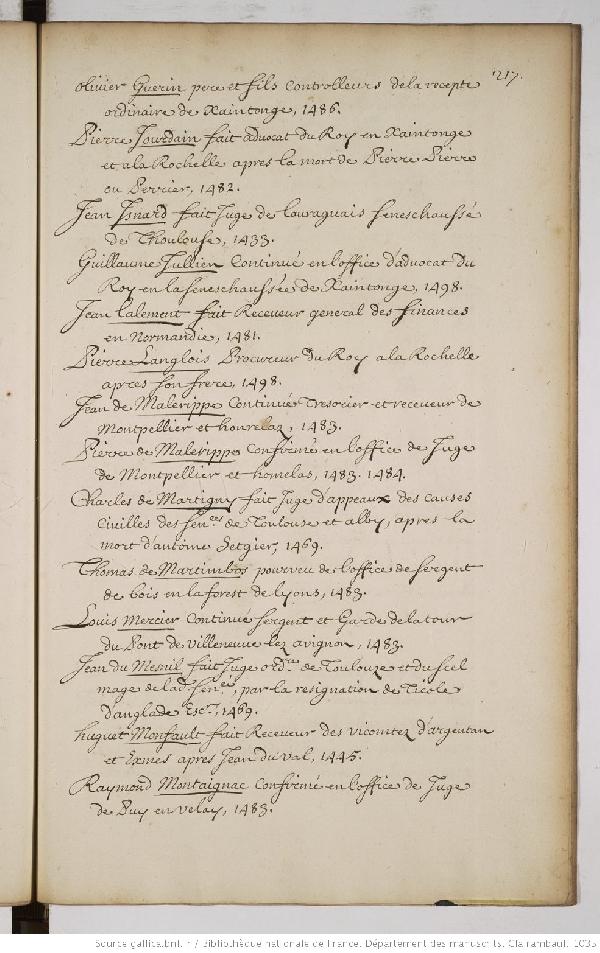 217.
olivier Guerin pere et fils Controlleurs de la recepte
ordinaire de Xaintonge, 1486.
Pierre Jourdain fait advocat du Roy en Xaintonge
et a la Rochelle apres la mort de Pierre Pierre
ou Perrier, 1482.
Jean Isnard fait Juge de Lauraguais seneschaussé
de Thoulouse, 1433.
Guillaume Jullien Continué en l'office d'advocat du
Roy en la seneschaussée de Xaintonge, 1498.
Jean Lalement fait Receveur general des finances
en Normandie, 1481.
Pierre Langlois Procureur du Roy a la Rochelle
apres son frere, 1498.
Jean de Malerippe Continué Tresorier et receveur de
Montpellier et homelaz, 1483.
Pierre de Malerippe Confirmé en l'office de Juge
de Montpellier et homelas, 1483. 1484.
Charles de Martigny fait Juge d'appeaux des causes
Civilles des sen.ées de Toulouse et alby, apres la
mort d'antoine Setgier, 1469.
Thomas de Martimbos pourveu de l'office de sergent
de bois en la forest de lyons, 1483.
Louis Mercier Continué sergent et Garde de la tour
du Pont de Villeneuve lez avignon, 1483.
Jean du Mesnil fait Juge ord.re de Toulouze et du scel
mage de lad. sen.ée, par la resignation de
d'anglade Esc.r, 1469.
huguet Monfault fait Receveur des vicomtez d'argentan
et Exmes apres Jean du val, 1445.
Raymond Montaignac Confirmé en l'office de Juge
de Puy en velay, 1483.
Source gallica.bnf.fr / Bibliothèque nationale de France. Département des manuscrits. Clairambault 1035